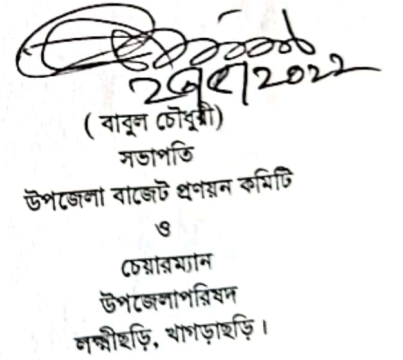 ২৯/৫/2022
( বাবুল চৌধুরী)
সভাপতি
উপজেলা বাজেট প্রণয়ন কমিটি
ও
চেয়ারম্যান
উপজেলাপরিষদ
লক্ষ্মীছড়ি, খাগড়াছড়ি।